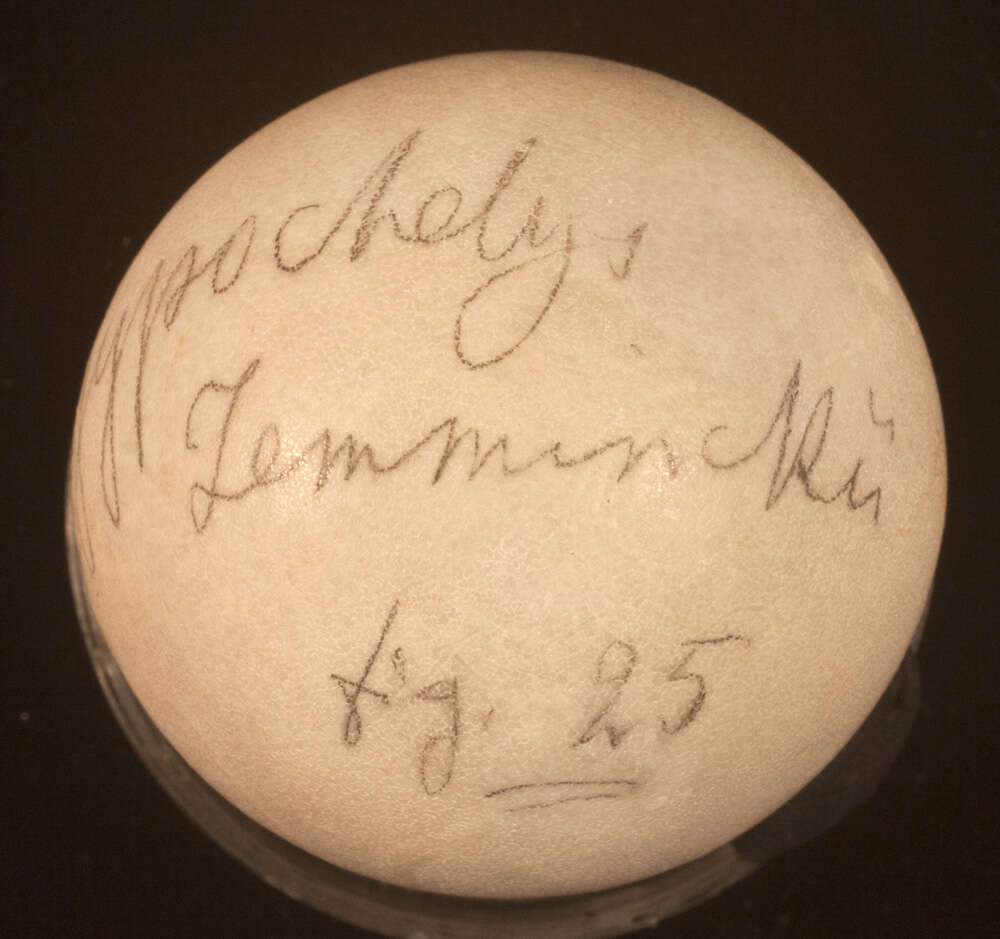 Gypochelys
Temminckii
fig. 25